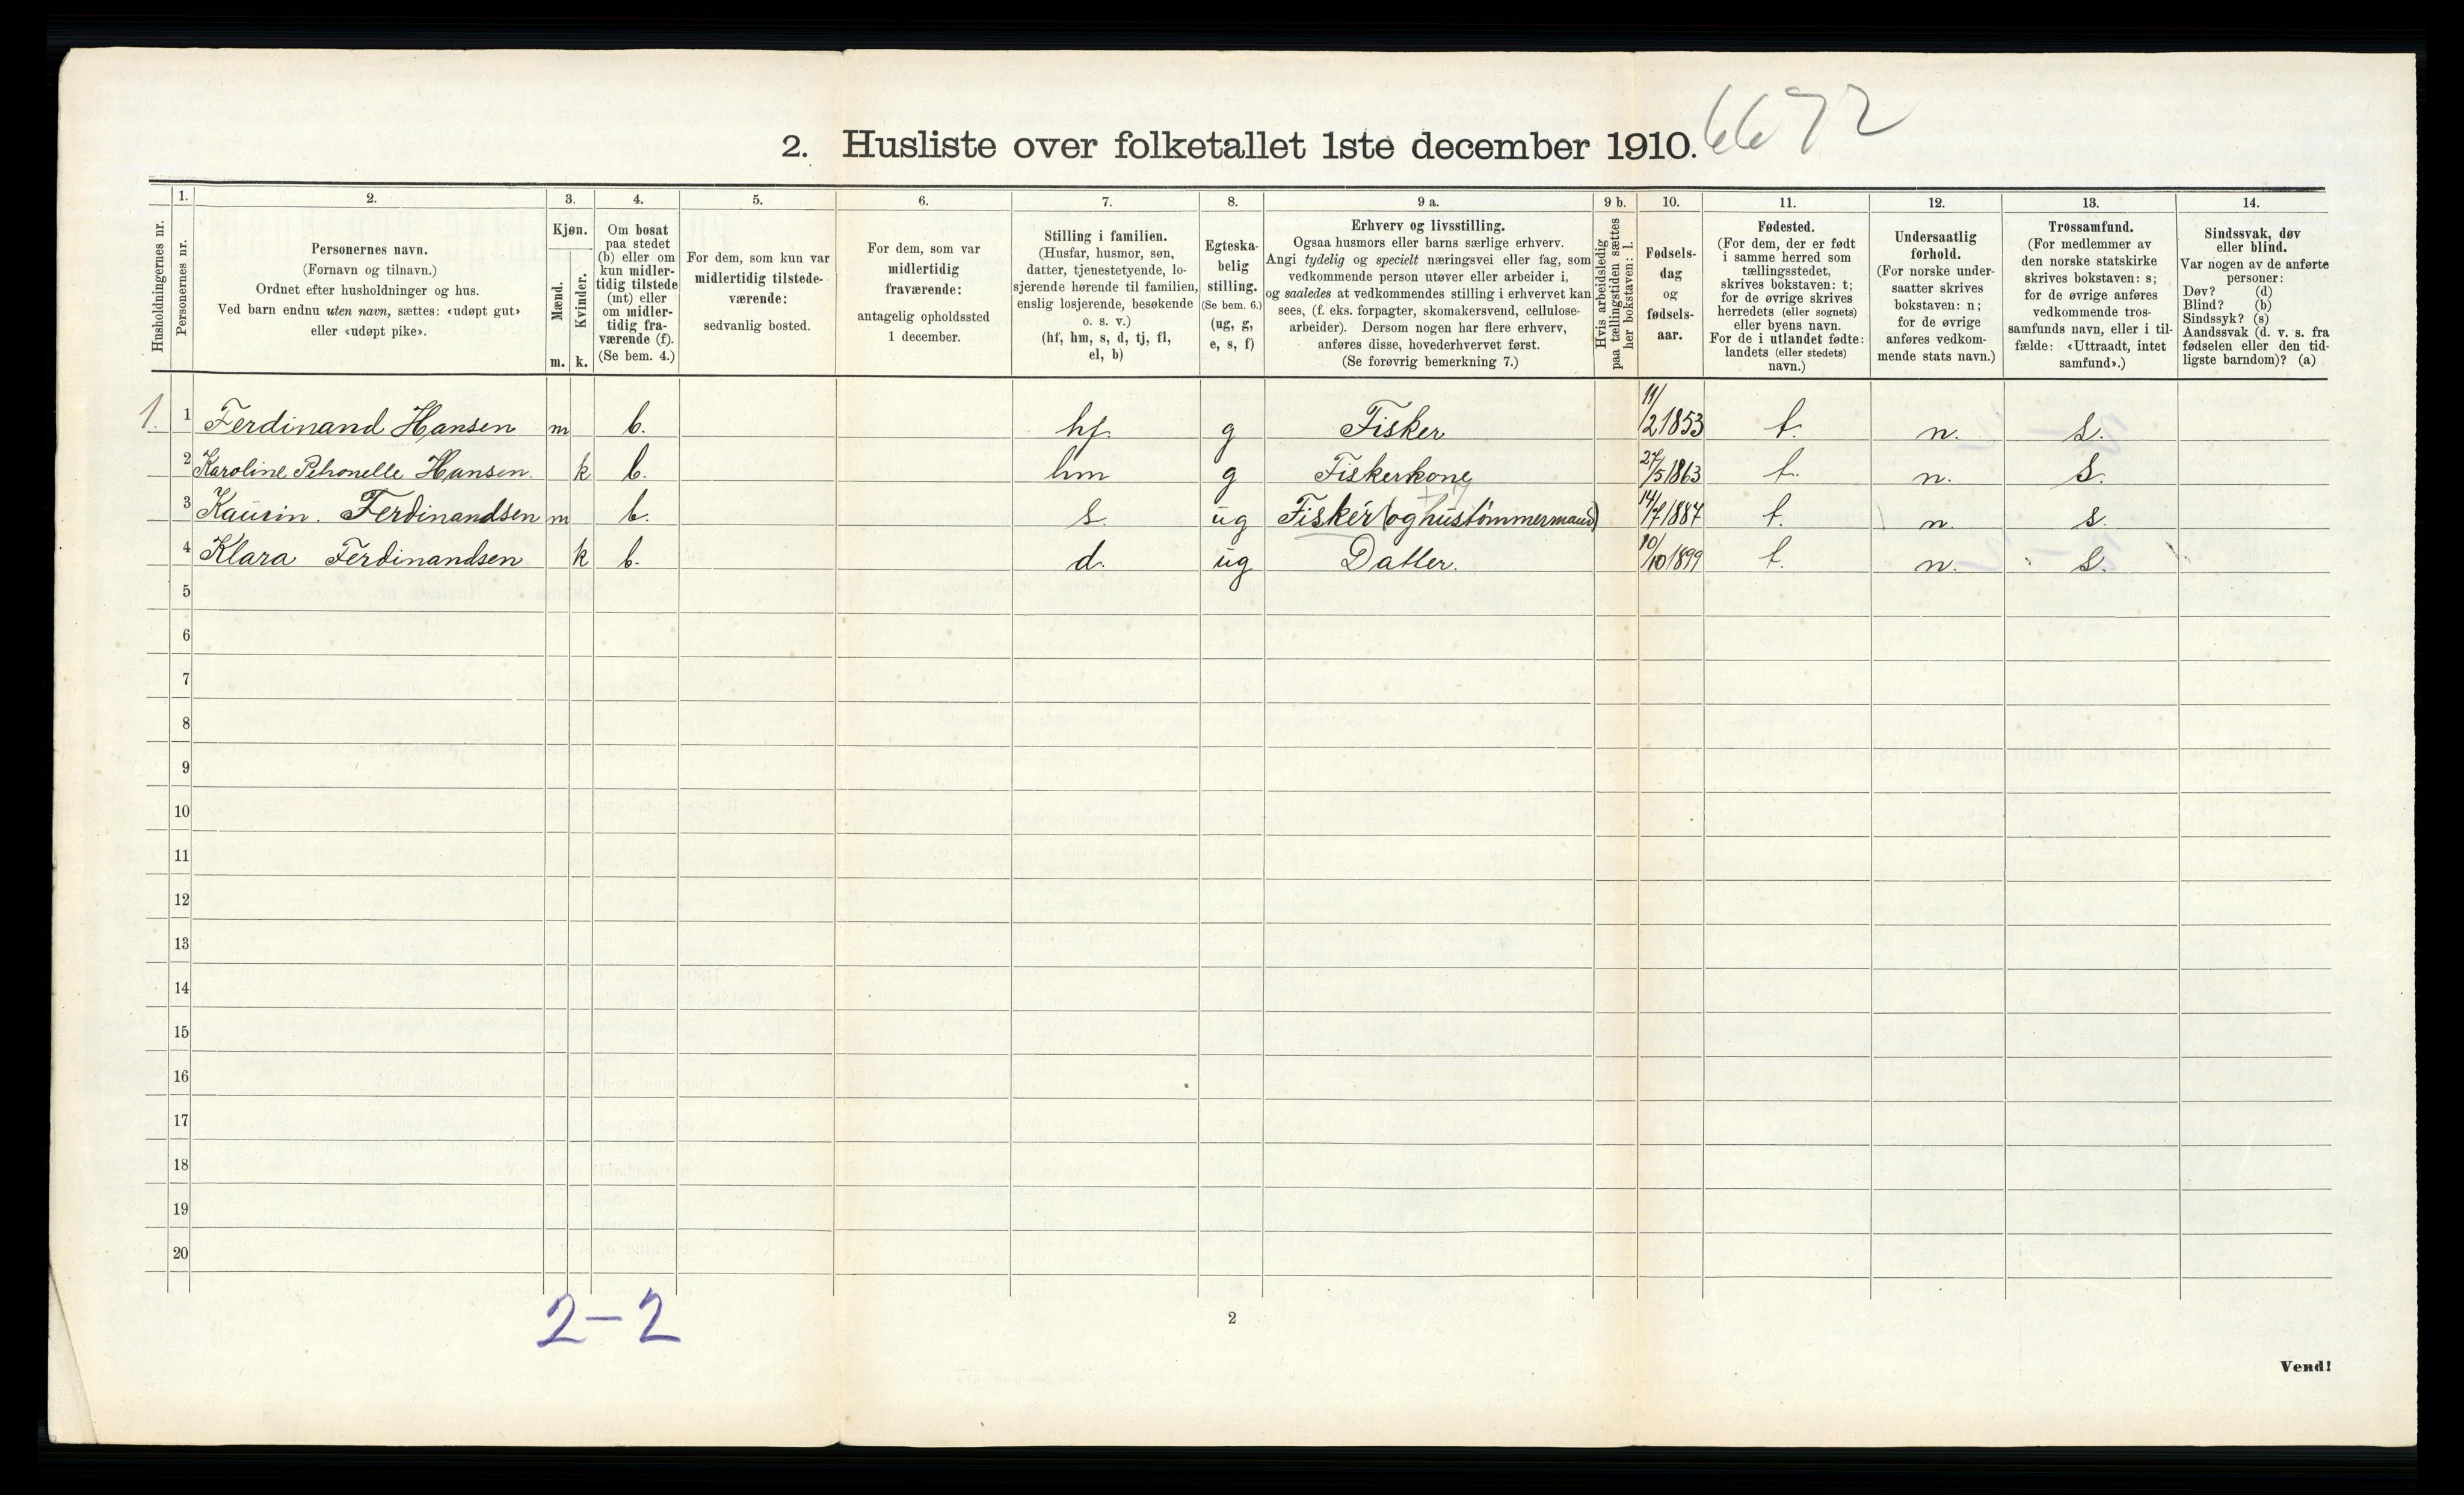 2. Husliste over folketallet 1ste december 1910. 6672
Husholdningernes nr.
1.
Personernes nr.
2.
Personernes navn.
(Fornavn og tilnavn.)
Ordnet efter husholdninger og hus.
Ved barn endnu uten navn, sættes: «udøpt gut»
eller «udøpt pike».
3.
Kjøn.
Mænd.
m.
Kvinder.
k.
4.
Om bosat
paa stedet
(b) eller om
kun midler-
tidig tilstede
(mt) eller
om midler-
tidig fra-
værende (f).
(Se bem. 4.)
5.
For dem, som kun var
midlertidig tilstede-
værende:
sedvanlig bosted.
6.
For dem, som var
midlertidig
fraværende:
antagelig opholdssted
1 december.
7.
Stilling i familien.
(Husfar, husmor, søn,
datter, tjenestetyende, lo-
sjerende hørende til familien,
enslig losjerende, besøkende
o. s. v.)
(hf, hm, s, d, tj, fl,
el, b)
8.
Egteska-
belig
stilling.
(Se bem. 6.)
(ug, g,
e, s, f)
9 a.
Erhverv og livsstilling.
Ogsaa husmors eller barns særlige erhverv.
Angi tydelig og specielt næringsvei eller fag, som
vedkommende person utøver eller arbeider i,
og saaledes at vedkommendes stilling i erhvervet kan
sees, (f. eks. forpagter, skomakersvend, cellulose-
arbeider). Dersom nogen har flere erhverv,
anføres disse, hovederhvervet først.
(Se forøvrig bemerkning 7.)
9 b.
Hvis arbeidsledig
paa tællingstiden sættes
her bokstaven: l.
10.
Fødsels-
dag
og
fødsels-
aar.
11.
Fødested.
(For dem, der er født
i samme herred som
tællingsstedet,
skrives bokstaven: t;
for de øvrige skrives
herredets (eller sognets)
eller byens navn.
For de i utlandet fødte:
landets (eller stedets)
navn.)
12.
Undersaatlig
forhold.
(For norske under-
saatter skrives
bokstaven: n;
for de øvrige
anføres vedkom-
mende stats navn.)
13.
Trossamfund.
(For medlemmer av
den norske statskirke
skrives bokstaven: s;
for de øvrige anføres
vedkommende tros-
samfunds navn, eller i til-
fælde: «Uttraadt, intet
samfund».)
14.
Sindssvak, døv
eller blind.
Var nogen av de anførte
personer:
Døv? (d)
Blind? (b)
Sindssyk? (s)
Aandssvak (d. v. s. fra
fødselen eller den tid-
ligste barndom)? (a)
1. 1 Ferdinand Hansen m b. hf. g Fisker 11/2 1853 t. n. s.
2 Karoline Petronelle Hansen. k b. hm g Fiskerkone 27/5 1863 t. n. s.
3 Kaurin. Ferdinandsen m b. s. ug Fisker (og hustømmermand) 14/7 1887 t. n. s.
4 Klara Ferdinandsen k b. d. ug Datter. 10/10 1899 t. n. s.
5
6
7
8
9
10
11
12
13
14
15
16
17
18
19
20
2-2
2
Vend!